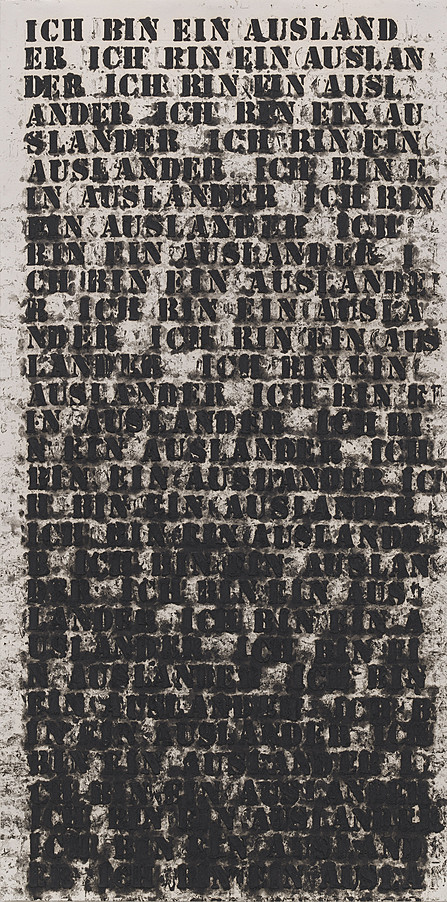 ICH BIN EIN AUSLAND
ER ICH BIN EIN AUSLAN
DER ICH BIN EIN AUSL
ANDER ICH BIN EIN AU
SLANDER ICH BIN EIN
AUSLANDER ICH BIN E
IN AUSLANDER ICH BIN
EIN AUSLANDER ICH
BIN EIN AUSLANDER I
CH BIN EIN AUSLANDE
R ICH BIN EIN AUSLA
NDER ICH BIN EIN AUS
LANDER ICH BIN EIN
AUSLANDER ICH BIN E
IN AUSLANDER ICH BI
N EIN AUSLANDER ICH
BIN EIN AUSLANDER IC
H BIN EIN AUSLANDER
ICH BIN EIN AUSLANDE
R ICH BIN EIN AUSLAN
DER ICH BIN EIN AUS
LANDER ICH BIN EIN A
USLANDER ICH BIN EI
N AUSLANDER ICH BIN
EIN AUSLANDER
IN EIN AUSLANDER ICH
BIN EIN AUSLANDER I
CH BIN EIN AUSLANDER
ICH BIN EIN AUSLANDE
ICH BIN EIN AUSLAND
ER ICH BIN EIN AUSLA